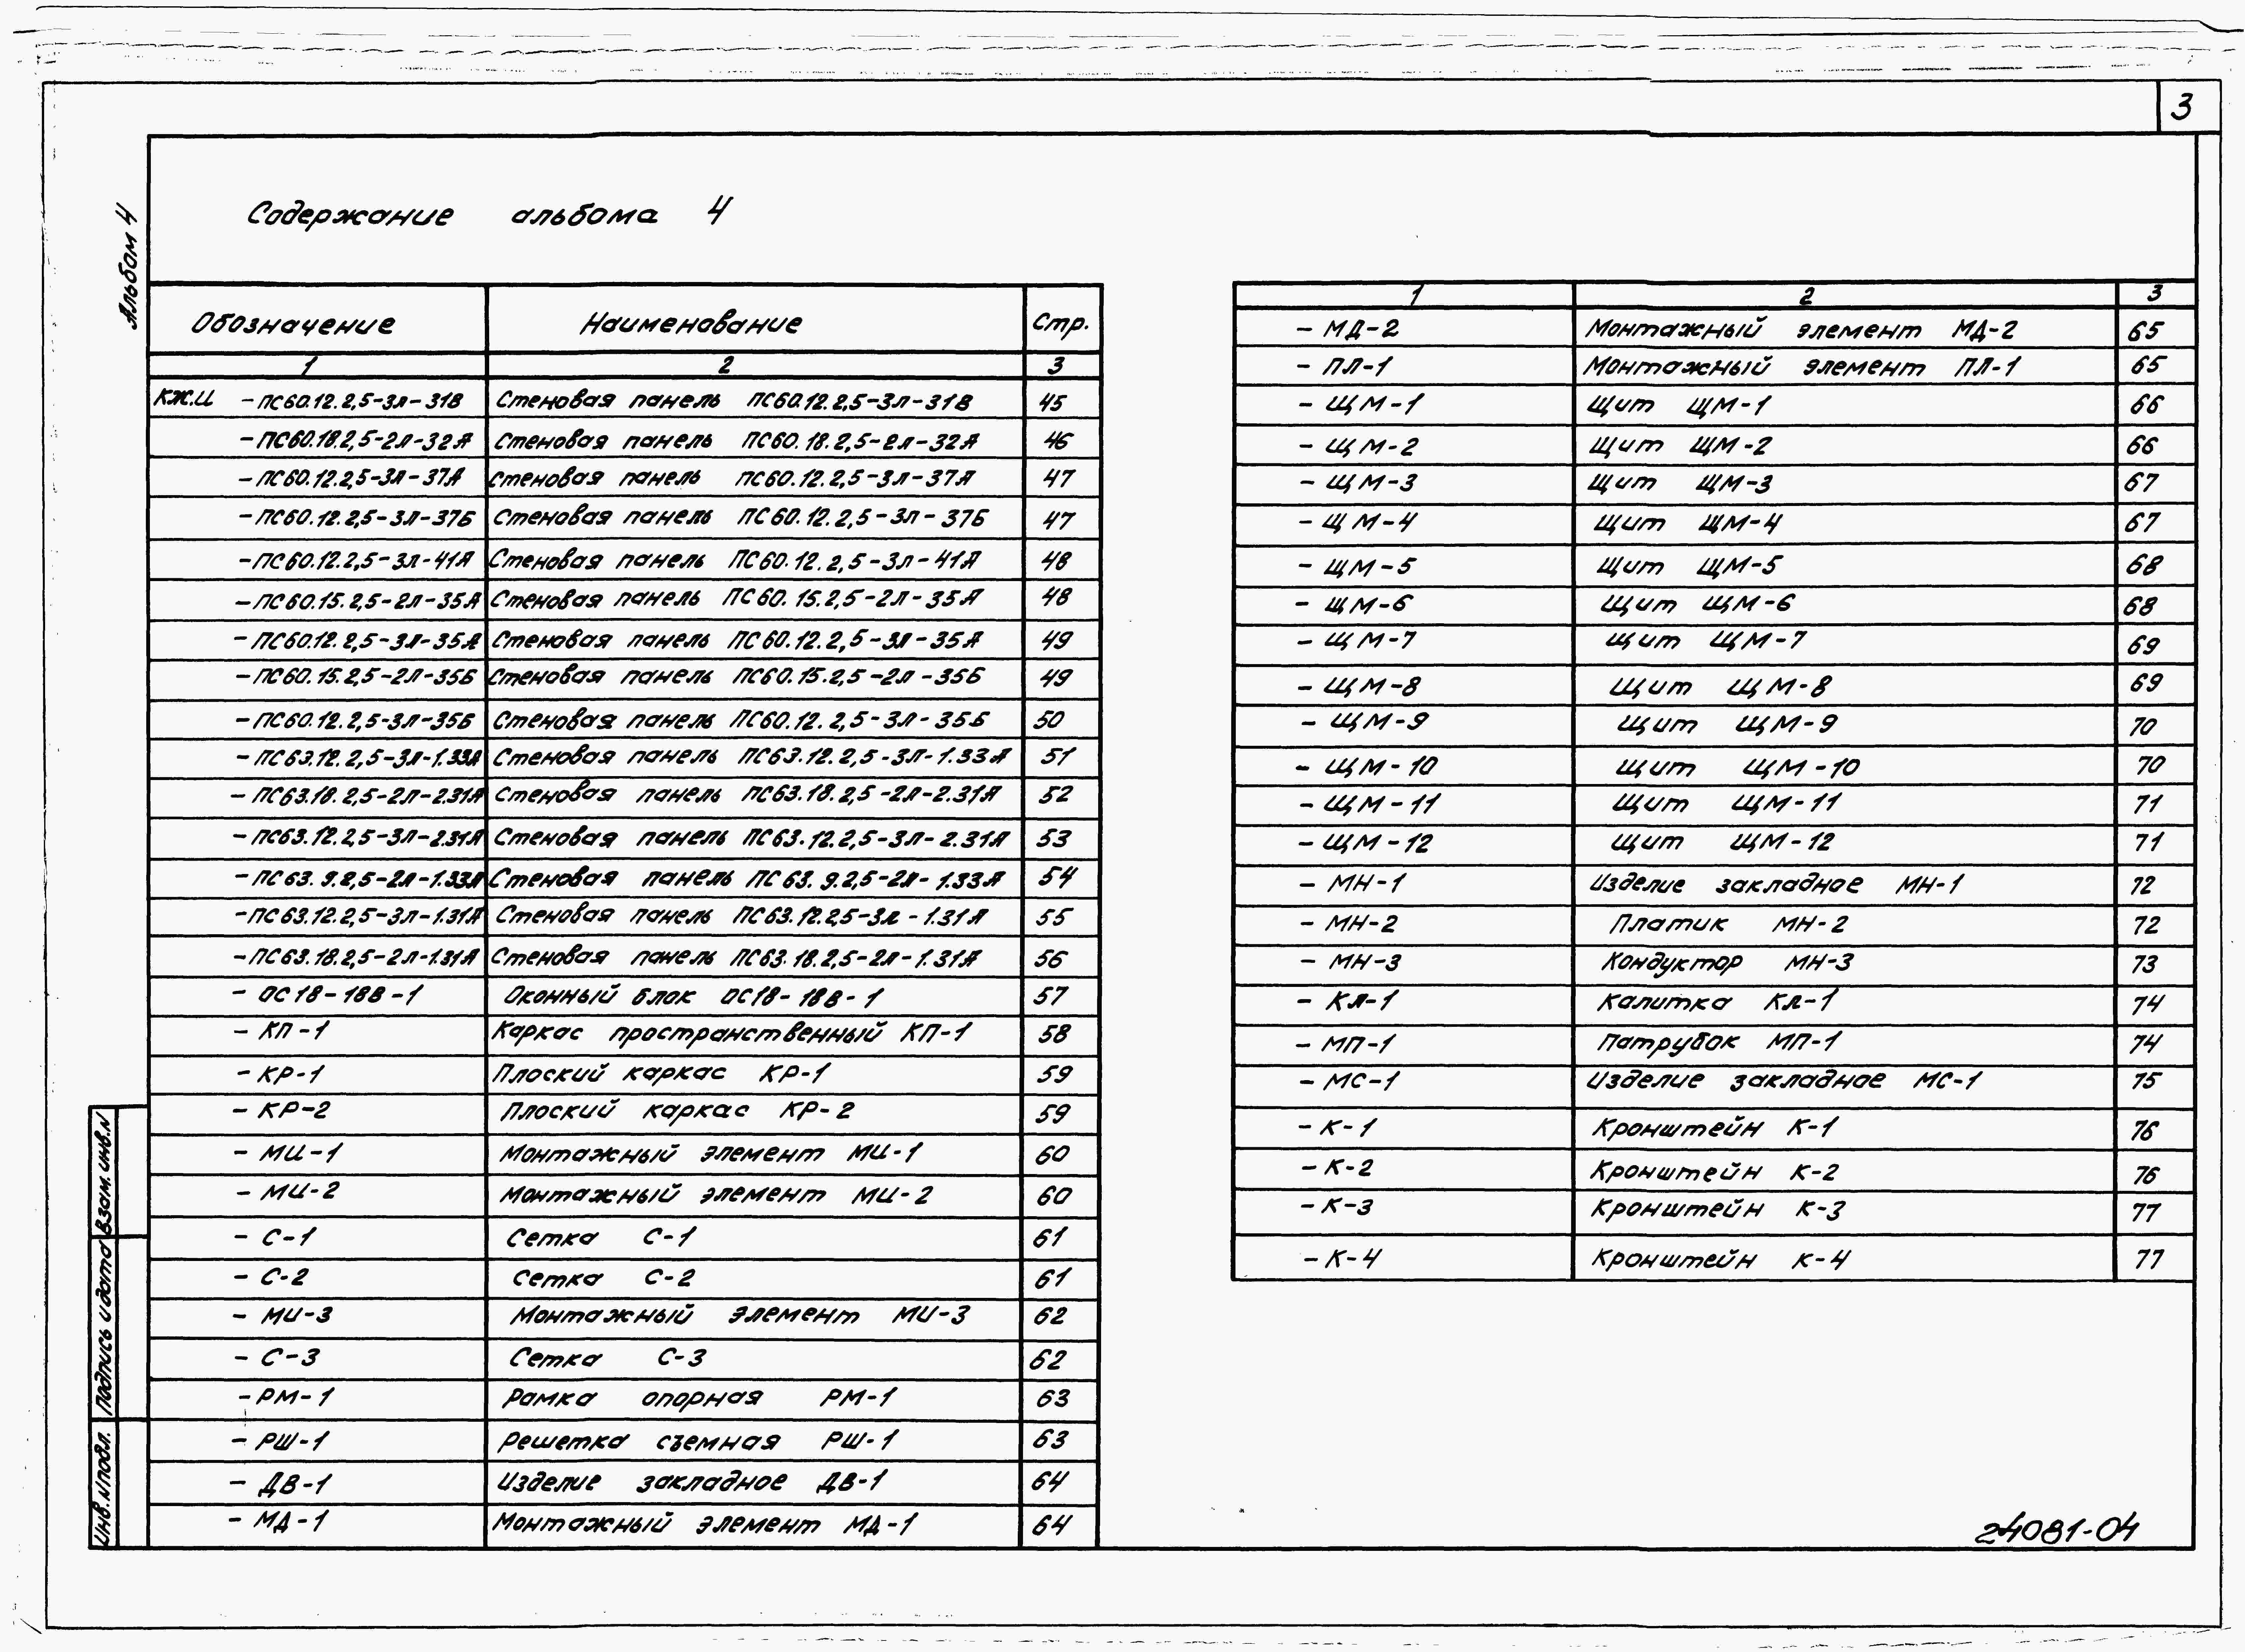 3
Альбом 4
Содержание альбома 4
Обозначение Наименование Стр.
1 2 3
КЖ.И -ПС60.12.2,5-3л-31В Стеновая панель ПС60.12.2,5-3л-31В 45
-ПС60.18.2,5-2л-32А Стеновая панель ПС60.18.2,5-2л-32А 46
-ПС60.12.2,5-3л-37А Стеновая панель ПС60.12.2,5-3л-37А 47
-ПС60.12.2,5-3л-37Б Стеновая панель ПС60.12.2,5-3л-37Б 47
-ПС60.12.2,5-3л-41А Стеновая панель ПС60.12.2,5-3л-41А 48
-ПС60.15.2,5-2л-35А Стеновая панель ПС60.15.2,5-2л-35А 48
-ПС60.12.2,5-3л-35А Стеновая панель ПС60.12.2,5-3л-35А 49
-ПС60.15.2,5-2л-35Б Стеновая панель ПС60.15.2,5-2л-35Б 49
-ПС60.12.2,5-3л-35Б Стеновая панель ПС60.12.2,5-3л-35Б 50
-ПС63.12.2,5-3л-1.33А Стеновая панель ПС63.12.2,5-3л-1.33А 51
-ПС63.18.2,5-2л-2.31А Стеновая панель ПС63.18.2,5-2л-2.31А 52
-ПС63.12.2,5-3л-2.31А Стеновая панель ПС63.12.2,5-3л-2.31А 53
-ПС63.9.2,5-2л-1.33А Стеновая панель ПС63.9.2,5-2л-1.33А 54
-ПС63.12.2,5-3л-1.31А Стеновая панель ПС63.12.2,5-3л-1.31А 55
-ПС63.18.2,5-2л-1.31А Стеновая панель ПС63.18.2,5-2л-1.31А 56
- ОС18-18В-1 Оконный блок ОС18-18В-1 57
- КП-1 Каркас пространственный КП-1 58
- КР-1 Плоский каркас КР-1 59
- КР-2 Плоский каркас КР-2 59
- МИ-1 Монтажный элемент МИ-1 60
- МИ-2 Монтажный элемент МИ-2 60
- С-1 Сетка С-1 61
- С-2 Сетка С-2 61
- МИ-3 Монтажный элемент МИ-3 62
- С-3 Сетка С-3 62
- РМ-1 Рамка опорная РМ-1 63
- РШ-1 Решетка съемная РШ-1 63
- ДВ-1 Изделие закладное ДВ-1 64
- МД-1 Монтажный элемент МД-1 64
1 2 3
- МД-2 Монтажный элемент МД-2 65
- ПЛ-1 Монтажный элемент ПЛ-1 65
- ЩМ-1 Щит ЩМ-1 66
- ЩМ-2 Щит ЩМ-2 66
- ЩМ-3 Щит ЩМ-3 67
- ЩМ-4 Щит ЩМ-4 67
- ЩМ-5 Щит ЩМ-5 68
- ЩМ-6 Щит ЩМ-6 68
- ЩМ-7 Щит ЩМ-7 69
- ЩМ-8 Щит ЩМ-8 69
- ЩМ-9 Щит ЩМ-9 70
- ЩМ-10 Щит ЩМ-10 70
- ЩМ-11 Щит ЩМ-11 71
- ЩМ-12 Щит ЩМ-12 71
- МН-1 Изделие закладное МН-1 72
- МН-2 Платик МН-2 72
- МН-3 Кондуктор МН-3 73
- Кл-1 Калитка Кл-1 74
- МП-1 Патрубок МП-1 74
- МС-1 Изделие закладное МС-1 75
- К-1 Кронштейн К-1 76
- К-2 Кронштейн К-2 76
- К-3 Кронштейн К-3 77
- К-4 Кронштейн К-4 77
Инв.№подл. Подпись и дата Взам.инв.№
24081-04